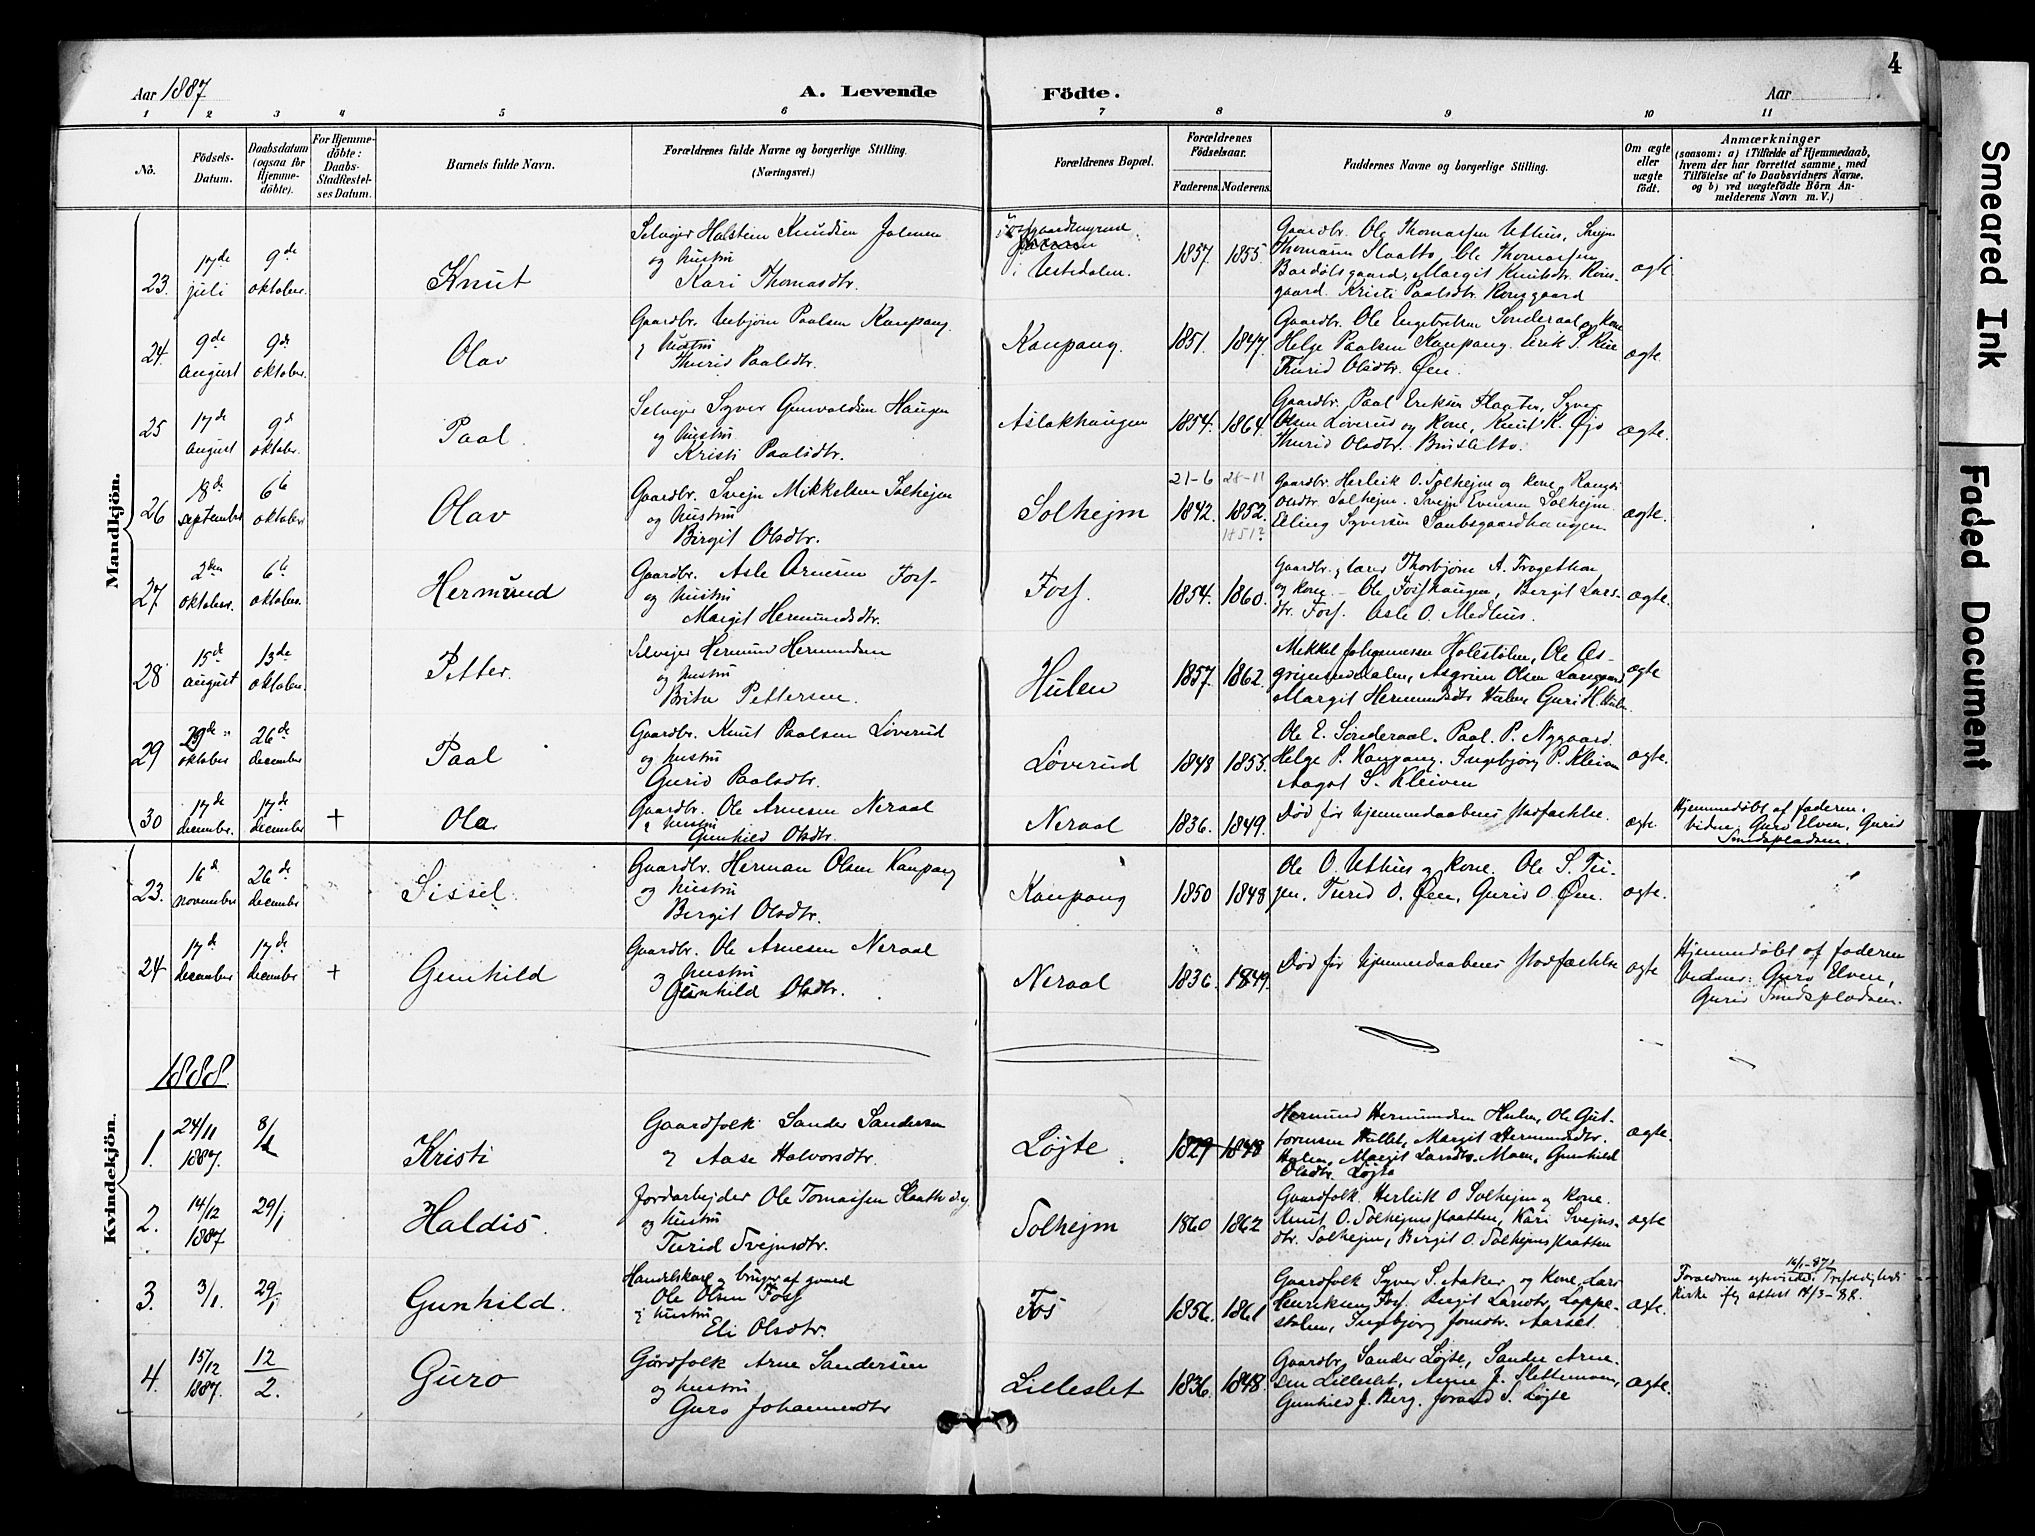 4
Aar 1887
A. Levende Födte.
Aar
1 2 3 4 5 6 7 8 9 10 11
No.
Födsels-
Datum.
Daabsdatum
(ogsaa for
Hjemme-
döbte).
For Hjemme-
döbte:
Daabs-
Stadfæstel-
ses Datum.
Barnets fulde Navn.
Forældrenes fulde Navne og borgerlige Stilling.
(Næringsvei.)
Forældrenes Bopæl.
Forældrenes
Födselsaar.
Faderens. Moderens.
Faddernes Navne og borgerlige Stilling.
Om ægte
eller
uægte
födt.
Anmærkninger
(saasom: a) i Tilfælde af Hjemmedaab,
hvem der har forrettet samme, med
Tilföielse af to Daabsvidners Navne,
og b) ved uægtefödte Börn An-
melderens Navn m. V.)
Mandkjön.
23.
17de
juli
9de
oktober.
Knut
Selvejer Halstein Knudsen
og hustru
Kari Thomasdtr.
i Ustedalen.
1857. 1855.
Gaardbr. Ole Thomassen Uthus, Svejn
Thomassen Slaatto, Ole Thomassen
Bardølsgaard, Margit Knutsdtr. Rons-
gaard. Kristi Paalsdtr. Ronsgaard
ægte
24.
9de
august
9de
oktober.
Olav
Gaardbr. Asbjørn Paalsen Kaupang
og hustru
Thurid Paalsdtr.
Kaupang.
1851. 1847.
Gaardbr. Ole Engebretsen Sønderaal og kone
Helge Paalsen Kaupang. Eirik S.
Turid Olsdtr. Øen.
ægte.
25
17de
august
9de
oktober.
Paal.
Selvejer Syver Gunvaldsen Haugen
og hustru
Kristi Paalsdtr.
Aslakhaugen
1854. 1864.
Gaardbr. Paal Eriksen Slaatten, Syver
Olsen Løverud og kone, Knut K. Øjo
Thurid Olsdtr. Brusletto.
ægte.
26
18de
september
6te
oktober.
Olav
Gaardbr. Svejn Mikkelsen Solhejm
og hustru
Birgit Olsdtr.
Solhejm
21-6 28-11
1842. 1852.
1851?
Gaardbr. Herleik O. Solhejm og kone, Rangdi
Olsdtr. Solhejm. Svejn Evensen Solhejm.
Elling Syversen Saubsgaardhaugen
ægte.
27
2den
oktober.
6te
oktober.
Hermund
Gaardbr. Asle Arnesen Foss
og hustru
Margit Hermundsdtr.
Foss.
1854. 1860.
Gaardbr. Thorbjørn A. Trogethon
og kone. Ole Fosshaugen, Bergit Lars-
dtr. Foss. Asle O. Medhus.
ægte.
28
15de
august
13de
oktober.
Petter.
Selvejer Hermund Hermundsen
og hustru
Brita Pettersen.
Hulen
1857. 1862.
Mikkel Johannessen Holestølen, Ole As-
grimsendalen, Asgrim Olsen
Margit Hermundsdtr Hulen Guri H. Hulen
ægte
29
29de
oktober
26de
december
Paal
Gaardbr. Knut Paalsen Løverud
og hustru
Gurid Paalsdtr.
Løverud
1848 1855.
Ole E. Sønderaal. Paal P. Nygaard.
Helge P. Kaupang. Ingebjørg P. Kleiven
Aagot S. Kleiven
ægte.
30
17de
december.
17de
december
+
Ola
Gaardbr. Ole Arnesen Neraal
og hustru
Gunhild Olsdtr.
Neraal
1836. 1849.
Død før hjemmedaabens stadfæstelse.
ægte.
Hjemmedøbt af faderen.
vidner Guro Elven, Gurid
Smedspladsen.
Kvindekjön.
23.
16de
november
26de
december
Sissel.
Gaardbr. Herman Olsen Kaupang
og hustru
Bergit Olsdtr.
Kaupang
1850 1848
Ole O. Uthus og kone. Ole S. Tei-
gen, Turid O. Øen, Gurid O. Øen.
ægte.
24
17de
december
17de
december
+
Gunhild
Gaardbr. Ole Arnesen Neraal
og hustru
Gunhild Olsdtr.
Neraal
1836. 1849.
Død før hjemmedaabens stadfæstelse
ægte
Hjemmedøbt af faderen
Vidner: Guro Elven,
Gurid Smedspladsen.
1888.
1.
24/11
1887.
8/1
Kristi
Gaardfolk Sander Sandersen
og Aase Halvorsdtr.
Løjte.
1829 1848
Hermund Hermundsen Hulen, Ole Gut-
tormsen Hallet, Margit Hermundsdtr.
Hulen, Margit Larsdtr. Moen, Gunhild
Olsdtr. Løjte
ægte.
2.
14/12
1887
29/1
Haldis.
Jordarbejder Ole Tomassen Slaatto
og hustru
Turid Svejnsdtr.
Solhejm
1860 1862
Gaardfolk Herleik O Solhejm og kone.
Knut O. Solhejmsslaatten, Kari Svejns-
dtr. Solhejm, Bergit O. Solhejmsslaatten
ægte
3.
3/1.
29/1
Gunhild.
Handelskarl og bruger af gaard
Ole Olsen Foss
og hustru
Eli Olsdtr.
Fos
1856. 1861
Gaardfolk Syver S. Aaker og kone, Lars
Henriksen Foss. Birgit Larsdtr. Loppe-
stølen, Ingebjørg Jonsdtr. Aarset.
ægte.
Forældrene ægteviede 16/1-87 i Trefoldigheds
kirke ifg attest 14/3-88.
4.
15/12
1887.
12/2.
Guro
Gårdfolk Arne Sandersen
og hustru
Guro Johannesdtr
Lilleslet
1836. 1848.
Gaardbr. Sander Løjte, Sander Arne-
sen Lilleslet, Anne J. Slettemoen,
Gunhild J. Berg. Jorand S. Løjte
ægte.
Smeared Ink
Faded Document